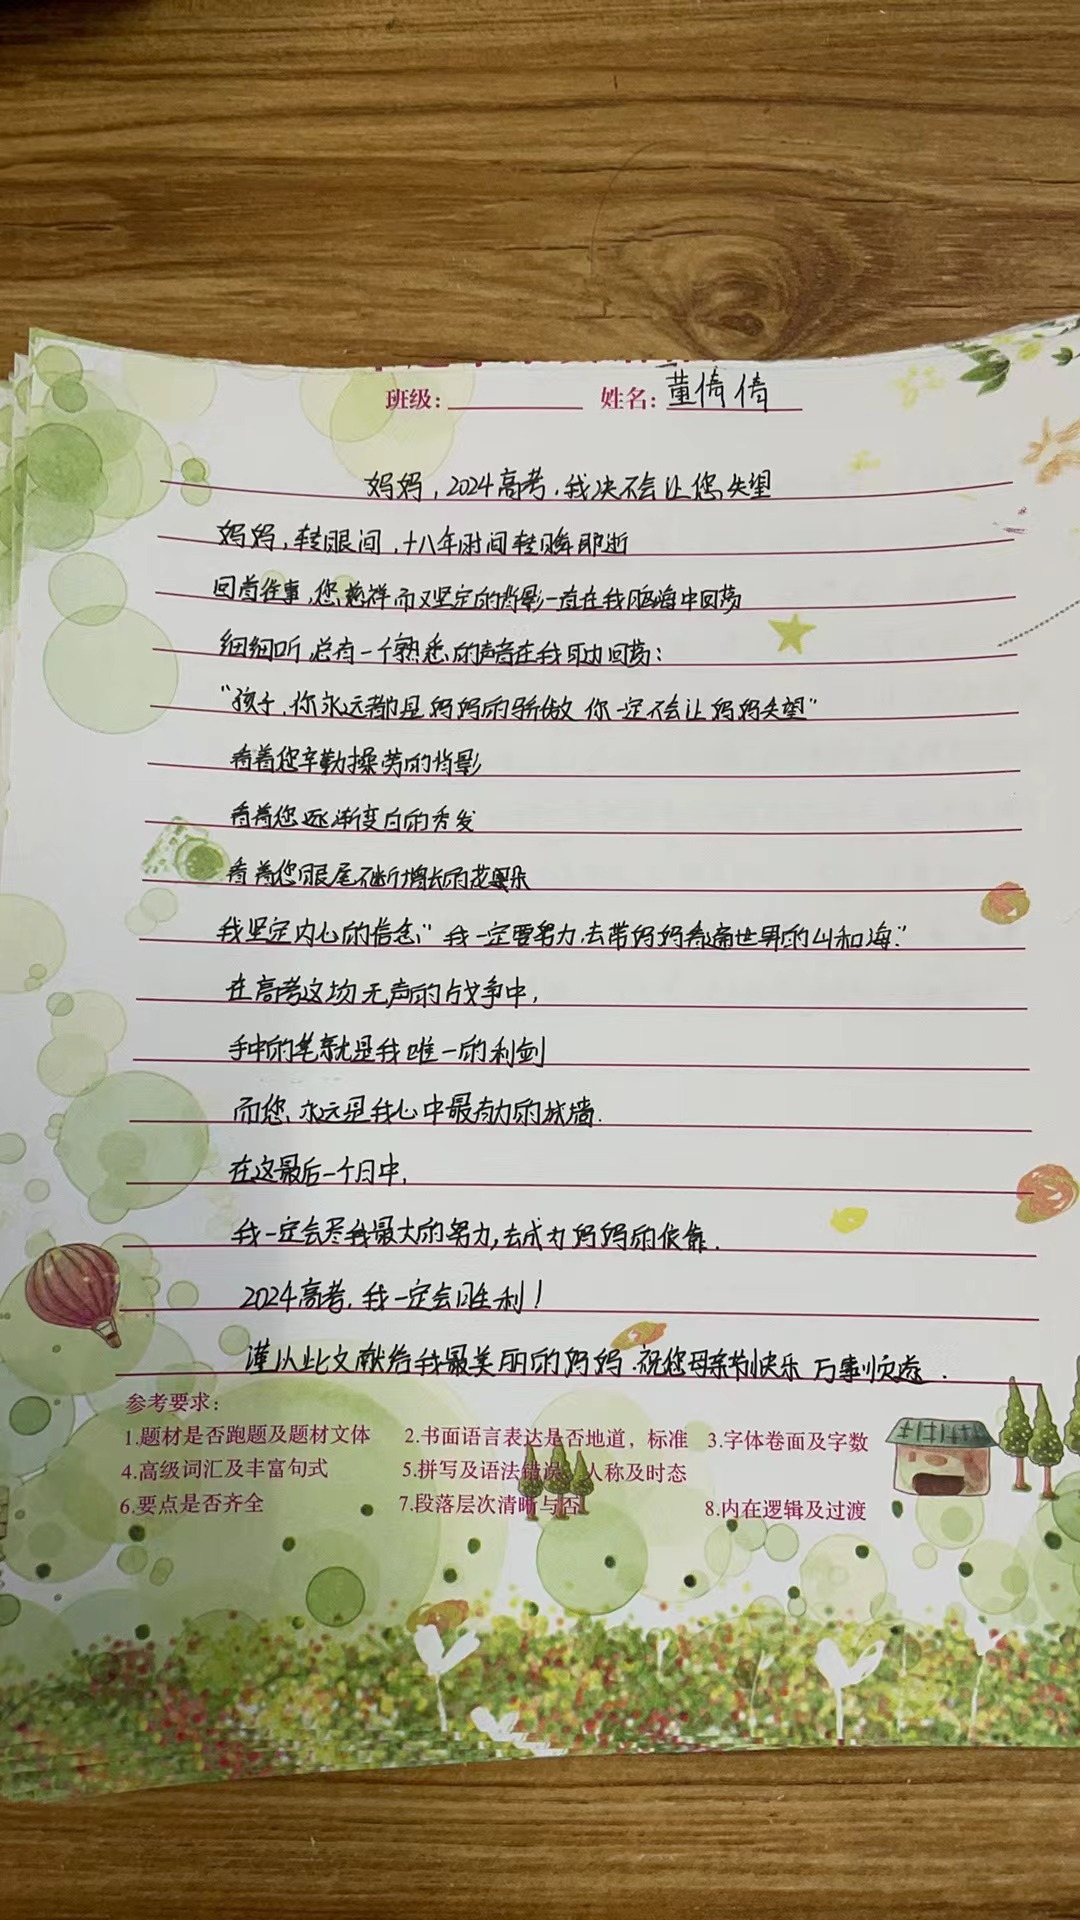 班级: 姓名: 董倩倩
妈妈，2024高考，我决不会让您失望
妈妈，转眼间，十八年时间转瞬即逝
回首往事，您慈祥而又坚定的背影一直在我脑海中回荡
细细听，总有一个熟悉的声音在我耳边回荡：
“孩子，你永远都是妈妈的骄傲 你一定不会让妈妈失望”
看着您辛勤操劳的背影
看着您逐渐变白的秀发
看着您眼尾不断增长的花朵
我坚定内心的信念“我一定要努力，去带妈妈看遍世界的山和海.”
在高考这场无声的战争中，
手中的笔就是我唯一的利剑
而您、永远是我心中最有力的城墙.
在这最后一个月中，
我一定会尽我最大的努力，去成为妈妈的依靠.
2024高考，我一定会胜利！
谨以此文献给我最美丽的妈妈.祝您母亲节快乐 万事顺遂.
参考要求：
1.题材是否跑题及题材文体 2.书面语言表达是否地道，标准 3.字体卷面及字数
4.高级词汇及丰富句式 5.拼写及语法错误，人称及时态
6.要点是否齐全 7.段落层次清晰与否 8.内在逻辑及过渡